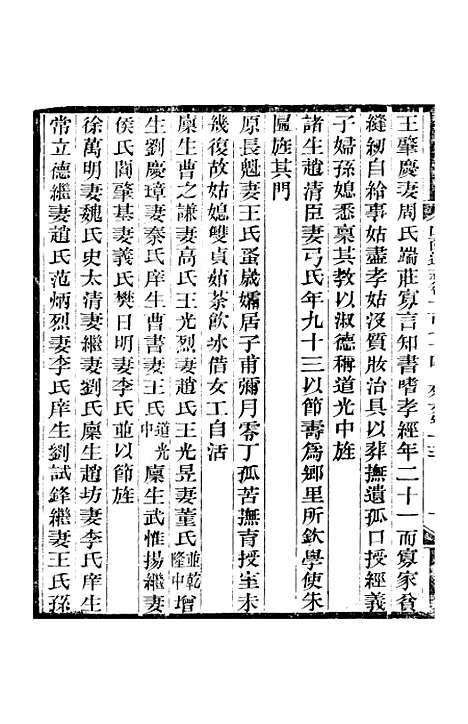 王肇慶妻周氏端莊寡言知書嗜孝經年二十一而寡家貧
縫紉自給事姑盡孝姑沒質妝治具以葬撫遺孤口授經義
子婦孫媳悉稟其教以淑德稱道光中旌
諸生趙清臣妻弓氏年九十三以節壽爲鄉里所欽學使朱
匾旌其門
原長魁妻王氏蚤歲孀居子甫彌月零丁孤苦撫育授室未
幾復故姑媳雙貞茹荼飲冰借女工自活
廩生曹之謙妻高氏王光烈妻趙氏王光昱妻董氏並乾隆中增
生劉慶璋妻秦氏庠生曹書妻王氏道光中廩生武惟揚繼妻
侯氏閻肇基妻義氏樊日明妻李氏並以節旌
徐萬明妻魏氏史太清妻繼妻劉氏廩生趙坊妻李氏庠生
常立德繼妻趙氏范炳烈妻李氏庠生劉試鋒繼妻王氏孫